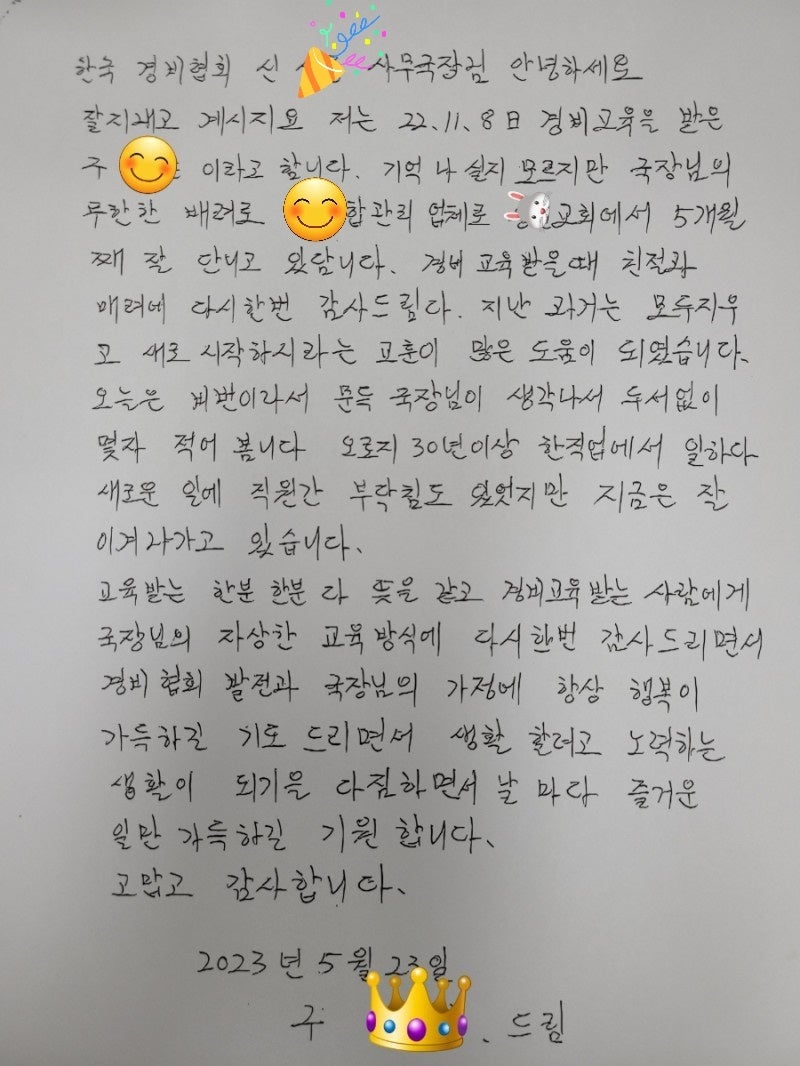 한국 경비협회 신 사무국장님 안녕하세요
잘지내고 계시지요 저는 22.11.8日 경비교육을 받은
구 이라고 합니다. 기억 나실지 모르지만 국장님의
무한한 배려로 합관리 업체로 교회에서 5개월
째 잘 단니고 있답니다. 경비 교육받을때 친절과
배려에 다시한번 감사드림다. 지난 과거는 모두지우
고 새로 시작하시라는 교훈이 많은 도움이 되였습니다.
오늘은 비번이라서 문득 국장님이 생각나서 두서없이
몇자 적어 봅니다 오로지 30년이상 한직업에서 일하다
새로운 일에 직원간 부닥침도 있었지만 지금은 잘
이겨나가고 있습니다.
교육받는 한분 한분 다 뜻을 같고 경비교육받는 사람에게
국장님의 자상한 교육방식에 다시한번 감사드리면서
경비협회 발전과 국장님의 가정에 항상 행복이
가득하길 기도 드리면서 생활 할려고 노력하는
생활이 되기을 다짐하면서 날 마다 즐거운
일만 가득하길 기원 합니다.
고맙고 감사합니다.
2023년 5월 23일
구 . 드림